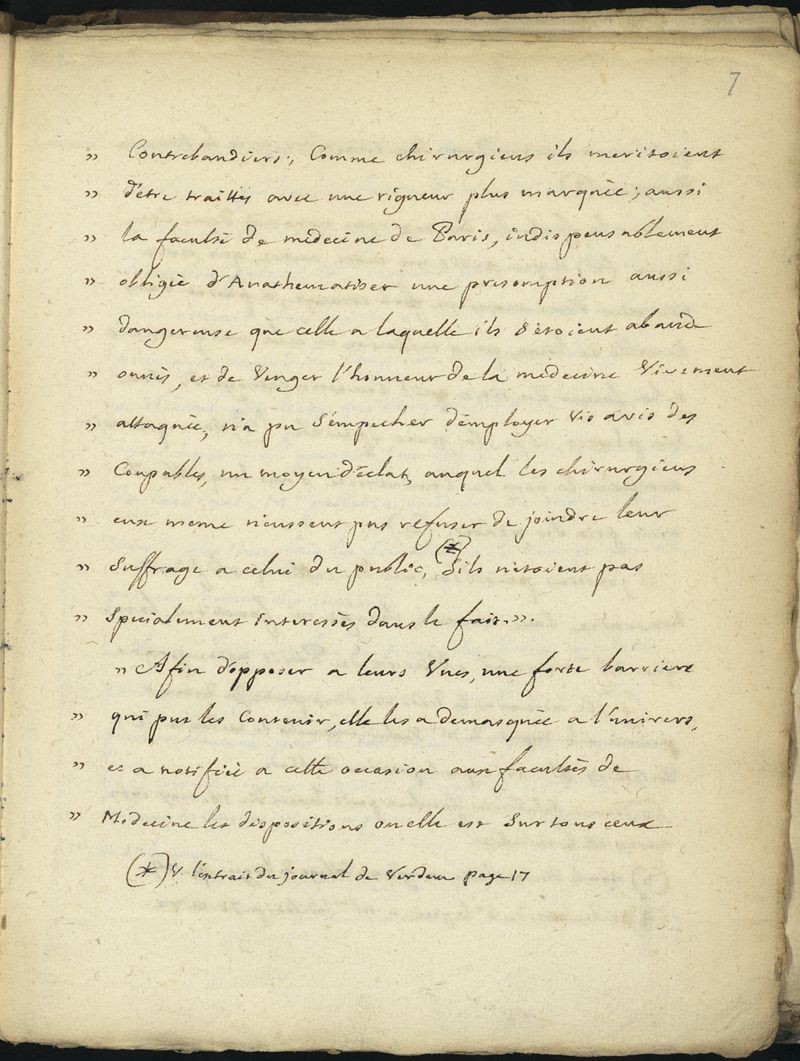 7
" Contrebandiers; Comme chirurgiens ils meritoient
" d'être traittés avec une rigueur plus marquée; aussi
" la faculté de medecine de Paris, indispensablement
" obligée d'Anathematiser une presomption aussi
" dangereuse que celle a laquelle ils s'étoient aband
" onnés, et de Venger l'honneur de la medecine Vivement
" attaquée, n'a pu s'émpecher d'émployer Vis avis des
" Coupables, un moyen d'éclat, auquel les chirurgiens
" eux meme n'eussent pas refuser de joindre leur
" Suffrage a celui du public, (*) S'ils n'étoient pas
" Specialement Interessés dans le fait. ".
" Afin d'opposer a leurs Vues, une forte barriere
" qui put les Contenir, elle les a demasquée a l'univers,
" et a notifiée a cette occasion aux facultés de
" Medecine les dispositions ou elle est Sur tous ceux
(*) V. l'extrait du journal de Verdun page 17